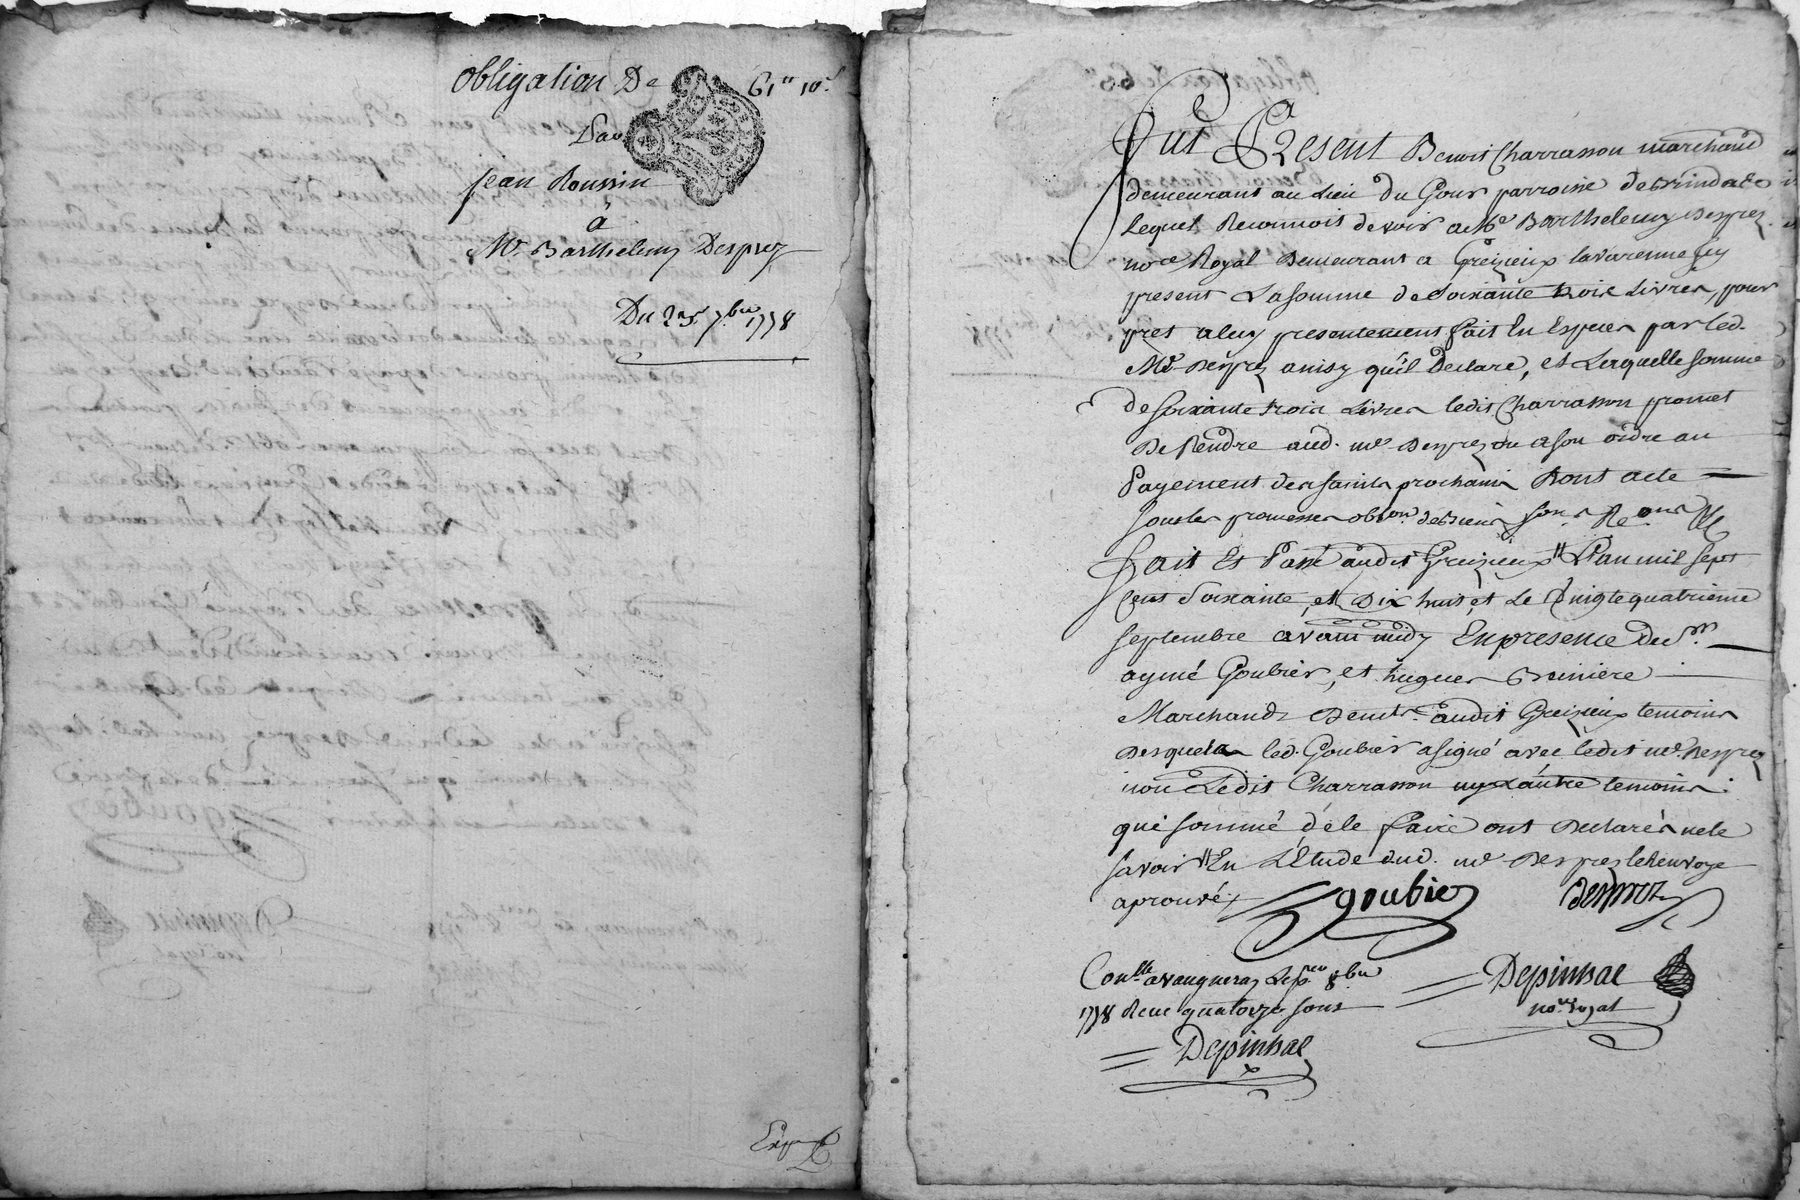 obligation De 61ᵗᵗ 10ˢ
Par
jean Roussin
à
Mʳ Barthelemy Desprez
Du 25ᵉ 7ᵇʳᵉ 1778
Exp
Fut Present Benoit Charrasson marchand
demeurant au Lieu Du Gour parroisse de Grindale
Lequel Reconnoit devoir a Mᵉ Barthelemy Desprez
noʳᵉ Royal Demeurant a Greizieux lavarenne Icy
present La somme de soixante trois Livres, pour
pret a luy presentement fait En Especes par led.
Mᵉ Desprez ainsy qu'il Declare, et Laquelle somme
de soixante trois Livres ledit Charrasson promet
De Rendre aud. mᵉ Desprez ou a son ordre au
Payement des saints prochain Dont acte
sous les promesses obᵒⁿ de biens
fait Et Passé audit Greizieux ᵗᵗ L'an mil sept
Cent Soixante, et Dix huit, et Le Vingtequatrième
septembre avant midy En presence de Sʳ
aymé Goubier, et hugues Brinière
Marchands Demᵗˢ audit Greizieux temoins
Desquels led. Goubier a signé avec ledit mᵉ Desprez
non Ledit Charrasson ny L'autre temoins
qui sommé de le faire ont Declarés ne le
savoir ᵗᵗ En L'Etude dud. mᵉ Desprez le Renvoye
aprouvé
Goubier Desprez
Conˡˡᵉ a vaugneray Le pᵉʳ 8ᵇʳᵉ
1778 Reçu quatorze sous
Depinhac
Depinhac
noʳᵉ royal